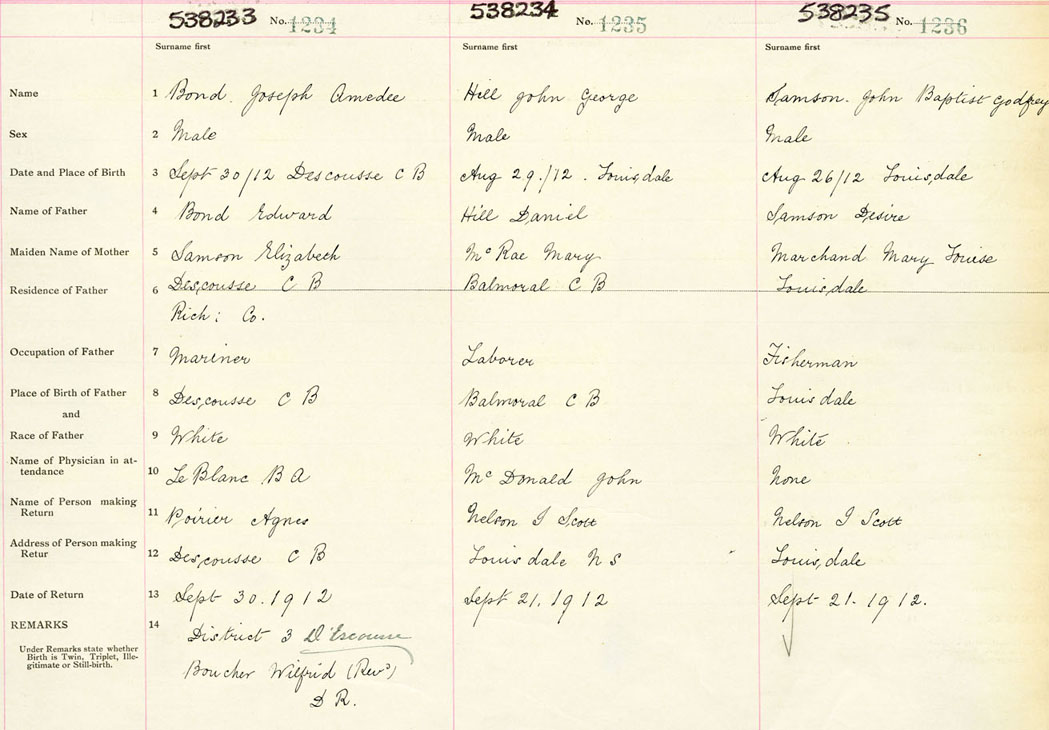 538233 No. 1234 538234 No. 1235 538235 No. 1236
Surname first Surname first Surname first
Name 1 Bond. Joseph Amedee Hill John George Samson. John Baptist Godfrey
Sex 2 Male Male Male
Date and Place of Birth 3 Sept 30/12 Descousse C B Aug 29./12. Louisdale Aug 26/12 Louisdale
Name of Father 4 Bond Edward Hill Daniel Samson Desire
Maiden Name of Mother 5 Samson Elizabech Mc Rae Mary Marchand Mary Louise
Residence of Father 6 Descousse C B Balmoral C B Louisdale
Rich: Co.
Occupation of Father 7 Mariner Laborer Fisherman
Place of Birth of Father 8 Descousse C B Balmoral C B Louisdale
and
Race of Father 9 White White White
Name of Physician in at-
tendance 10 Le Blanc B A Mc Donald John None
Name of Person making
Return 11 Poirier Agnes Nelson I Scott Nelson I Scott
Address of Person making
Retur 12 Descousse C B Louisdale N S Louisdale
Date of Return 13 Sept 30.1912 Sept 21.1912 Sept 21.1912.
REMARKS 14 District 3 D'Escousse
Under Remarks state whether
Birth is Twin. Triplet, Ille-
gitimate or Still-birth.
Boucher Wilfrid (Revd)
D R.